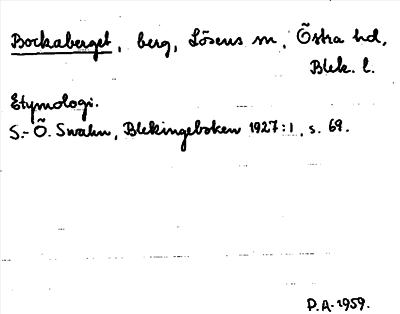 Bockaberget, berg, Lösens sn, Östra hd,
Blek. l.
Etymologi.
S.-Ö. Swahn, Blekingeboken 1927:1, s. 69.
P.A. 1959.